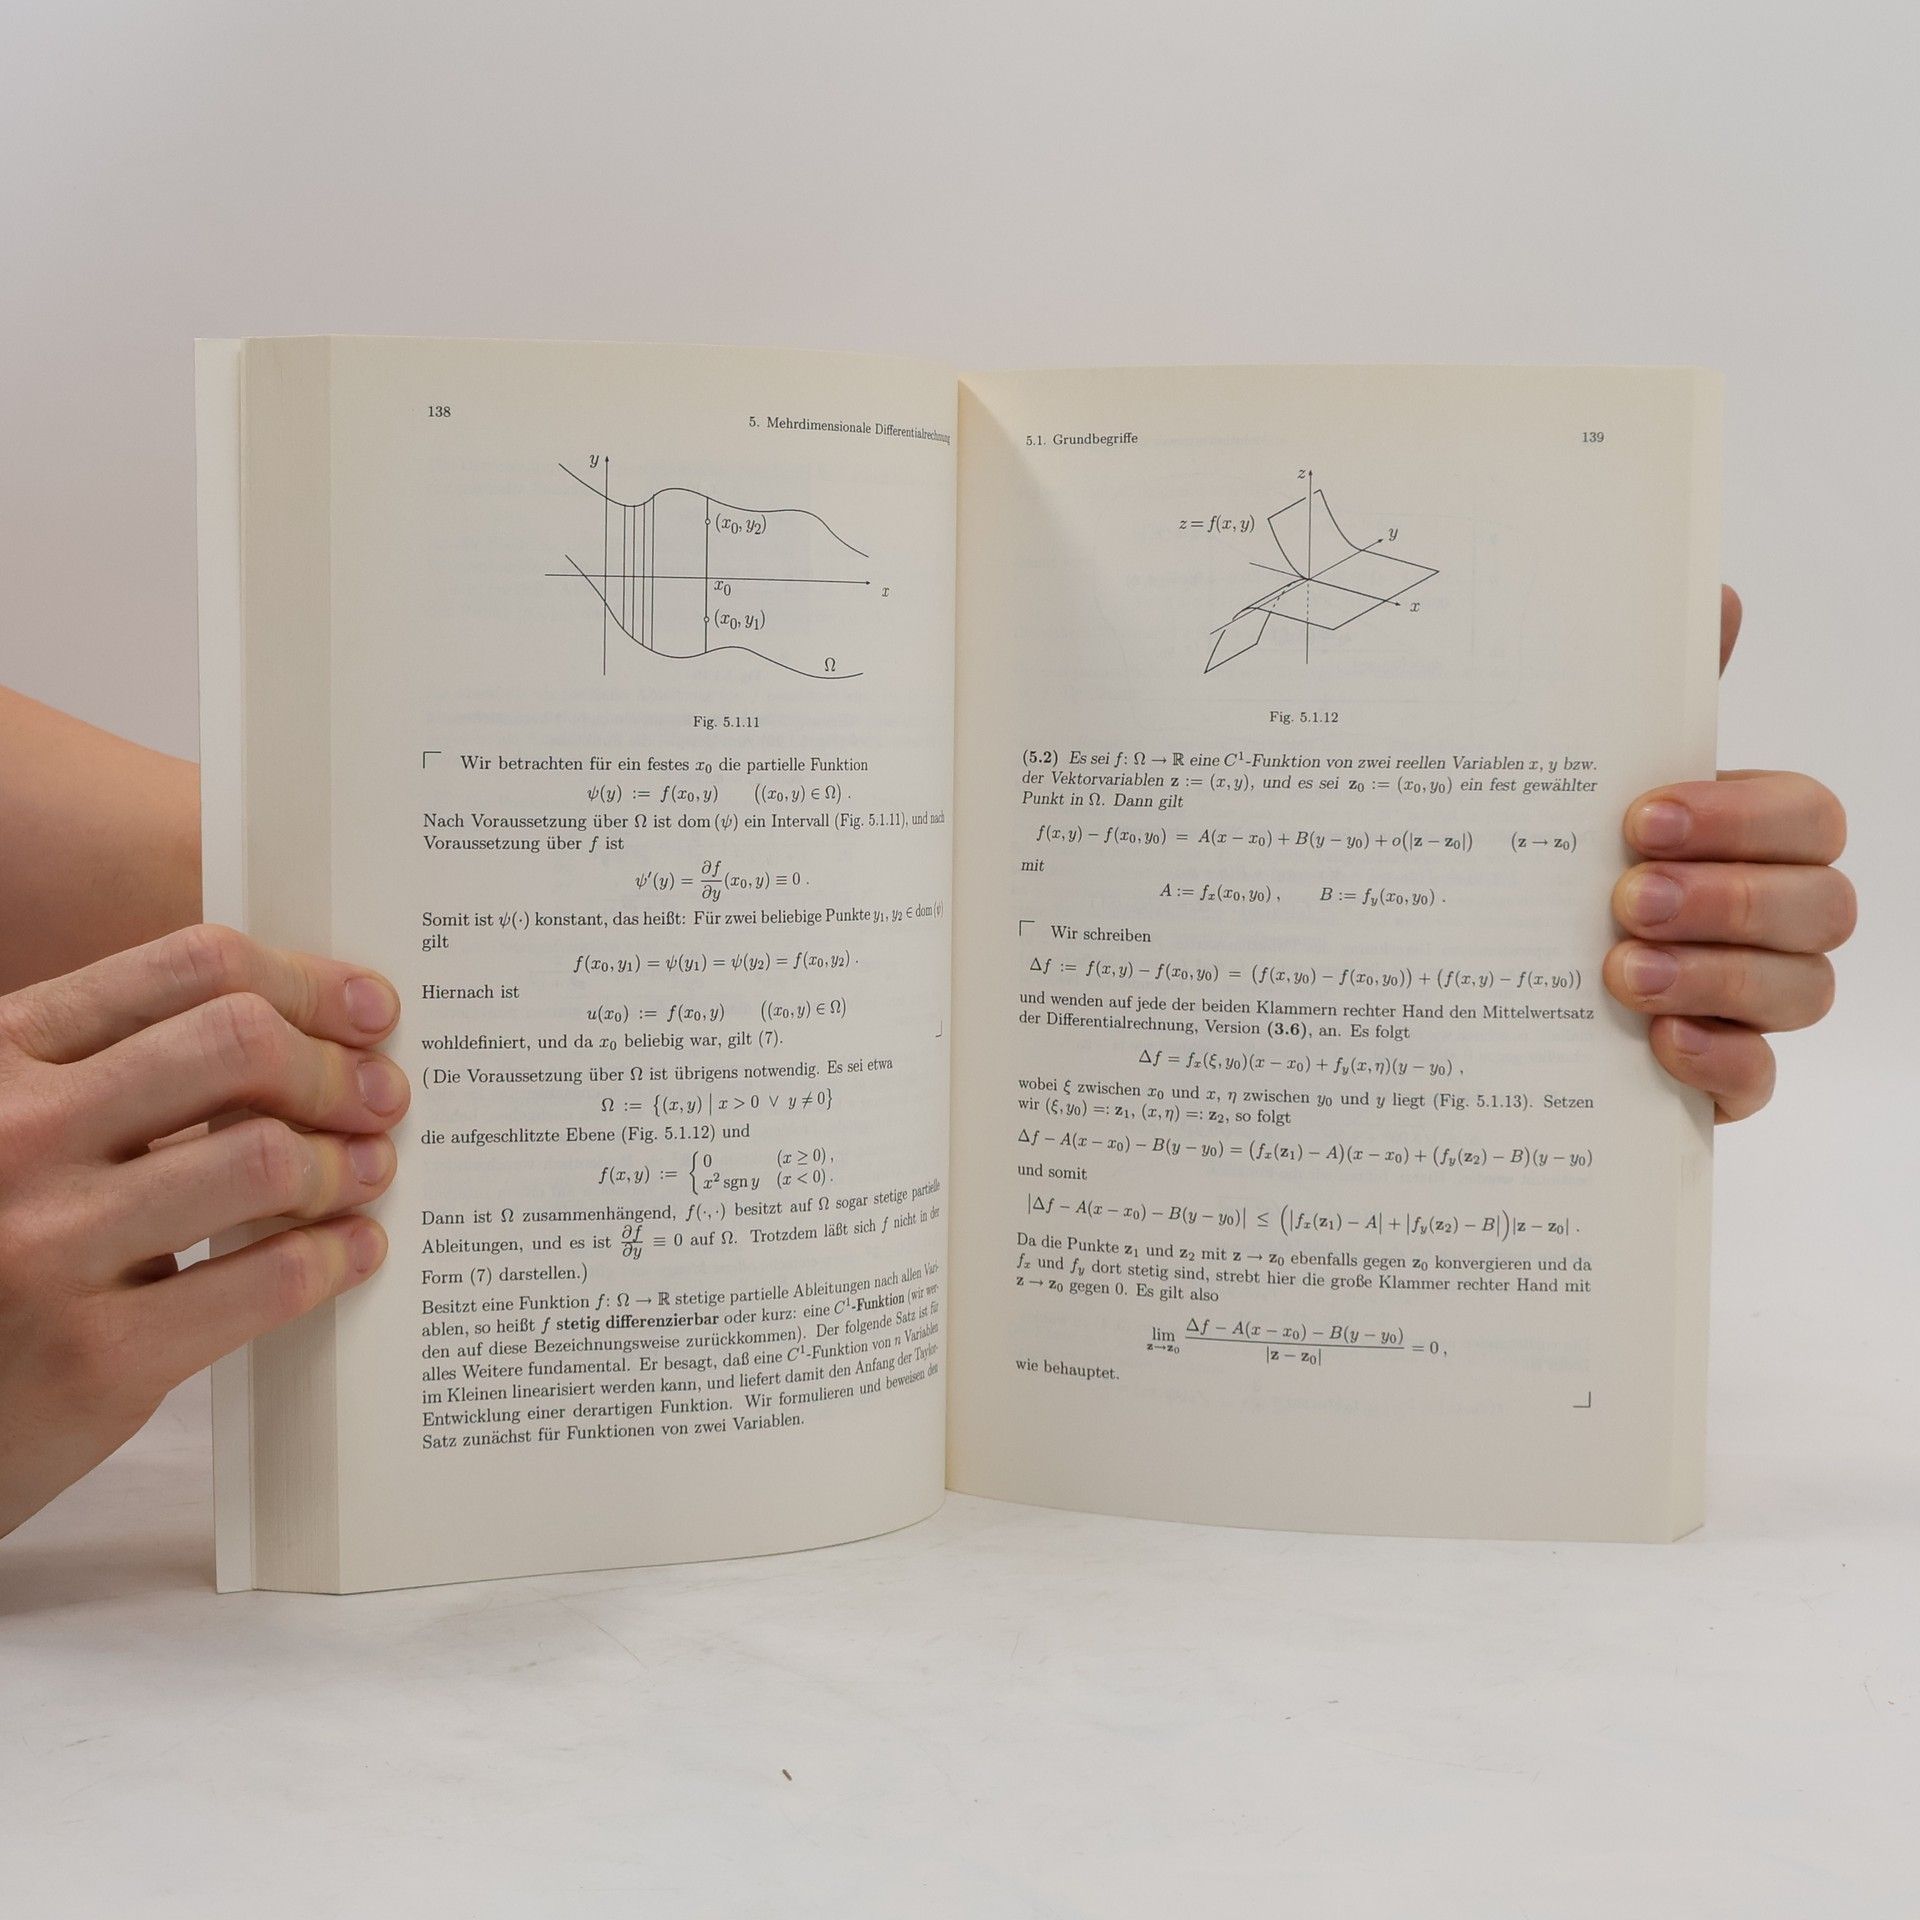 138
5. Mehrdimensionale Differentialrechnung
y
(x₀, y₂)
x₀
x
(x₀, y₁)
Ω
Fig. 5.1.11
Wir betrachten für ein festes x₀ die partielle Funktion
ψ(y) := f(x₀, y) ((x₀, y) ∈ Ω) .
Nach Voraussetzung über Ω ist dom (ψ) ein Intervall (Fig. 5.1.11), und nach
Voraussetzung über f ist
ψ′(y) = ∂f/∂y (x₀, y) ≡ 0 .
Somit ist ψ(·) konstant, das heißt: Für zwei beliebige Punkte y₁, y₂ ∈ dom (ψ)
gilt
f(x₀, y₁) = ψ(y₁) = ψ(y₂) = f(x₀, y₂) .
Hiernach ist
u(x₀) := f(x₀, y) ((x₀, y) ∈ Ω)
wohldefiniert, und da x₀ beliebig war, gilt (7).
(Die Voraussetzung über Ω ist übrigens notwendig. Es sei etwa
Ω := {(x, y) | x > 0 ∨ y ≠ 0}
die aufgeschlitzte Ebene (Fig. 5.1.12) und
f(x, y) := { 0 (x ≥ 0) ,
x² sgn y (x < 0) .
Dann ist Ω zusammenhängend, f(·, ·) besitzt auf Ω sogar stetige partielle
Ableitungen, und es ist ∂f/∂y ≡ 0 auf Ω. Trotzdem läßt sich f nicht in der
Form (7) darstellen.)
Besitzt eine Funktion f: Ω → ℝ stetige partielle Ableitungen nach allen Vari-
ablen, so heißt f stetig differenzierbar oder kurz: eine C¹-Funktion (wir wer-
den auf diese Bezeichnungsweise zurückkommen). Der folgende Satz ist für
alles Weitere fundamental. Er besagt, daß eine C¹-Funktion von n Variablen
im Kleinen linearisiert werden kann, und liefert damit den Anfang der Taylor-
Entwicklung einer derartigen Funktion. Wir formulieren und beweisen den
Satz zunächst für Funktionen von zwei Variablen.
5.1. Grundbegriffe
139
z
z = f(x, y)
y
x
Fig. 5.1.12
(5.2) Es sei f: Ω → ℝ eine C¹-Funktion von zwei reellen Variablen x, y bzw.
der Vektorvariablen z := (x, y), und es sei z₀ := (x₀, y₀) ein fest gewählter
Punkt in Ω. Dann gilt
f(x, y) − f(x₀, y₀) = A(x − x₀) + B(y − y₀) + o(|z − z₀|) (z → z₀)
mit
A := fₓ(x₀, y₀) , B := f_y(x₀, y₀) .
Wir schreiben
Δf := f(x, y) − f(x₀, y₀) = (f(x, y₀) − f(x₀, y₀)) + (f(x, y) − f(x, y₀))
und wenden auf jede der beiden Klammern rechter Hand den Mittelwertsatz
der Differentialrechnung, Version (3.6), an. Es folgt
Δf = fₓ(ξ, y₀)(x − x₀) + f_y(x, η)(y − y₀) ,
wobei ξ zwischen x₀ und x, η zwischen y₀ und y liegt (Fig. 5.1.13). Setzen
wir (ξ, y₀) =: z₁, (x, η) =: z₂, so folgt
Δf − A(x − x₀) − B(y − y₀) = (fₓ(z₁) − A)(x − x₀) + (f_y(z₂) − B)(y − y₀)
und somit
|Δf − A(x − x₀) − B(y − y₀)| ≤ (|fₓ(z₁) − A| + |f_y(z₂) − B|)|z − z₀| .
Da die Punkte z₁ und z₂ mit z → z₀ ebenfalls gegen z₀ konvergieren und da
fₓ und f_y dort stetig sind, strebt hier die große Klammer rechter Hand mit
z → z₀ gegen 0. Es gilt also
lim z→z₀ (Δf − A(x − x₀) − B(y − y₀)) / |z − z₀| = 0 ,
wie behauptet.